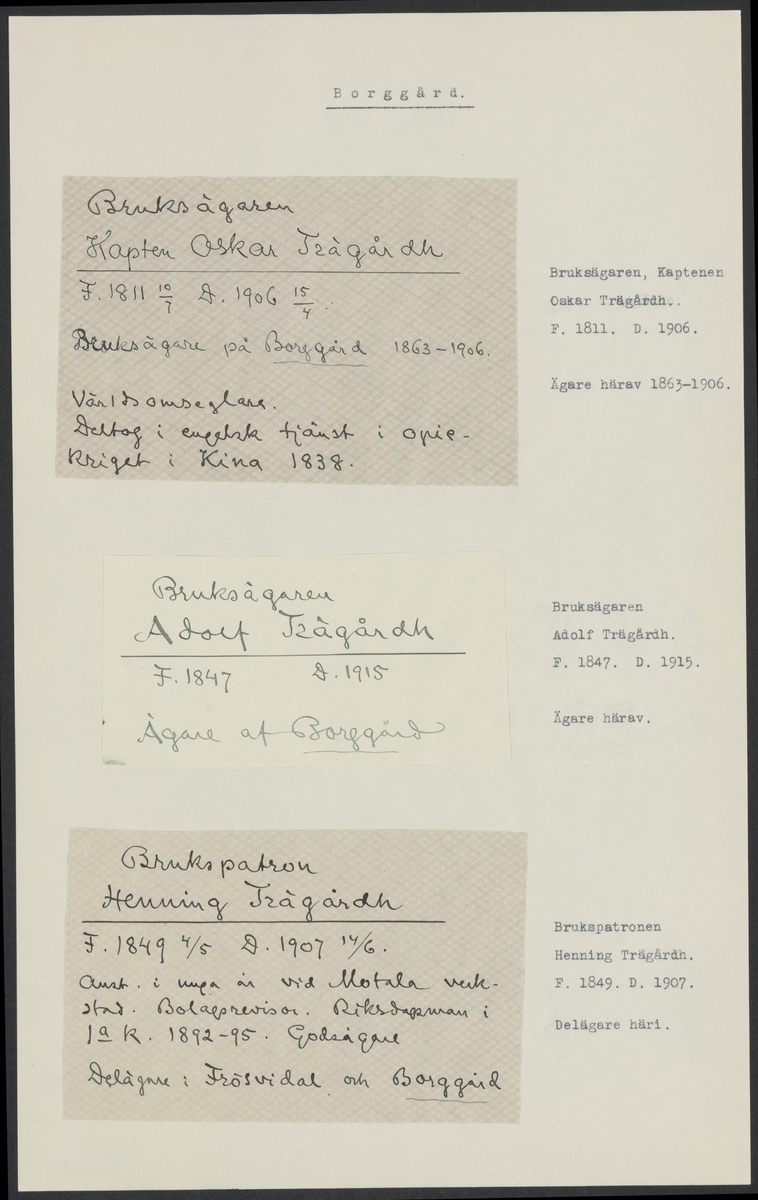 Borggård.
Bruksägaren
Kapten Oskar Trägårdh
F. 1811 10/7 D. 1906 15/4.
Bruksägare på Borggård 1863-1906.
Världsomseglare.
Deltog i engelsk tjänst i opie-
kriget i Kina 1838.
Bruksägaren, Kaptenen
Oskar Trägårdh..
F. 1811. D. 1906.
Ägare härav 1863-1906.
Bruksägaren
Adolf Trägårdh
F. 1847 D. 1915
Ägare af Borggård
Bruksägaren
Adolf Trägårdh.
F. 1847. D. 1915.
Ägare härav.
Brukspatron
Henning Trägårdh
F. 1849 4/5 D. 1907 14/6.
Anst. i unga år vid Motala verk-
stad. Bolagsrevisor. Riksdagsman i
1a k. 1892-95. Godsägare
Delägare i Frösvidal och Borggård
Brukspatronen
Henning Trägårdh.
F. 1849. D. 1907.
Delägare häri.